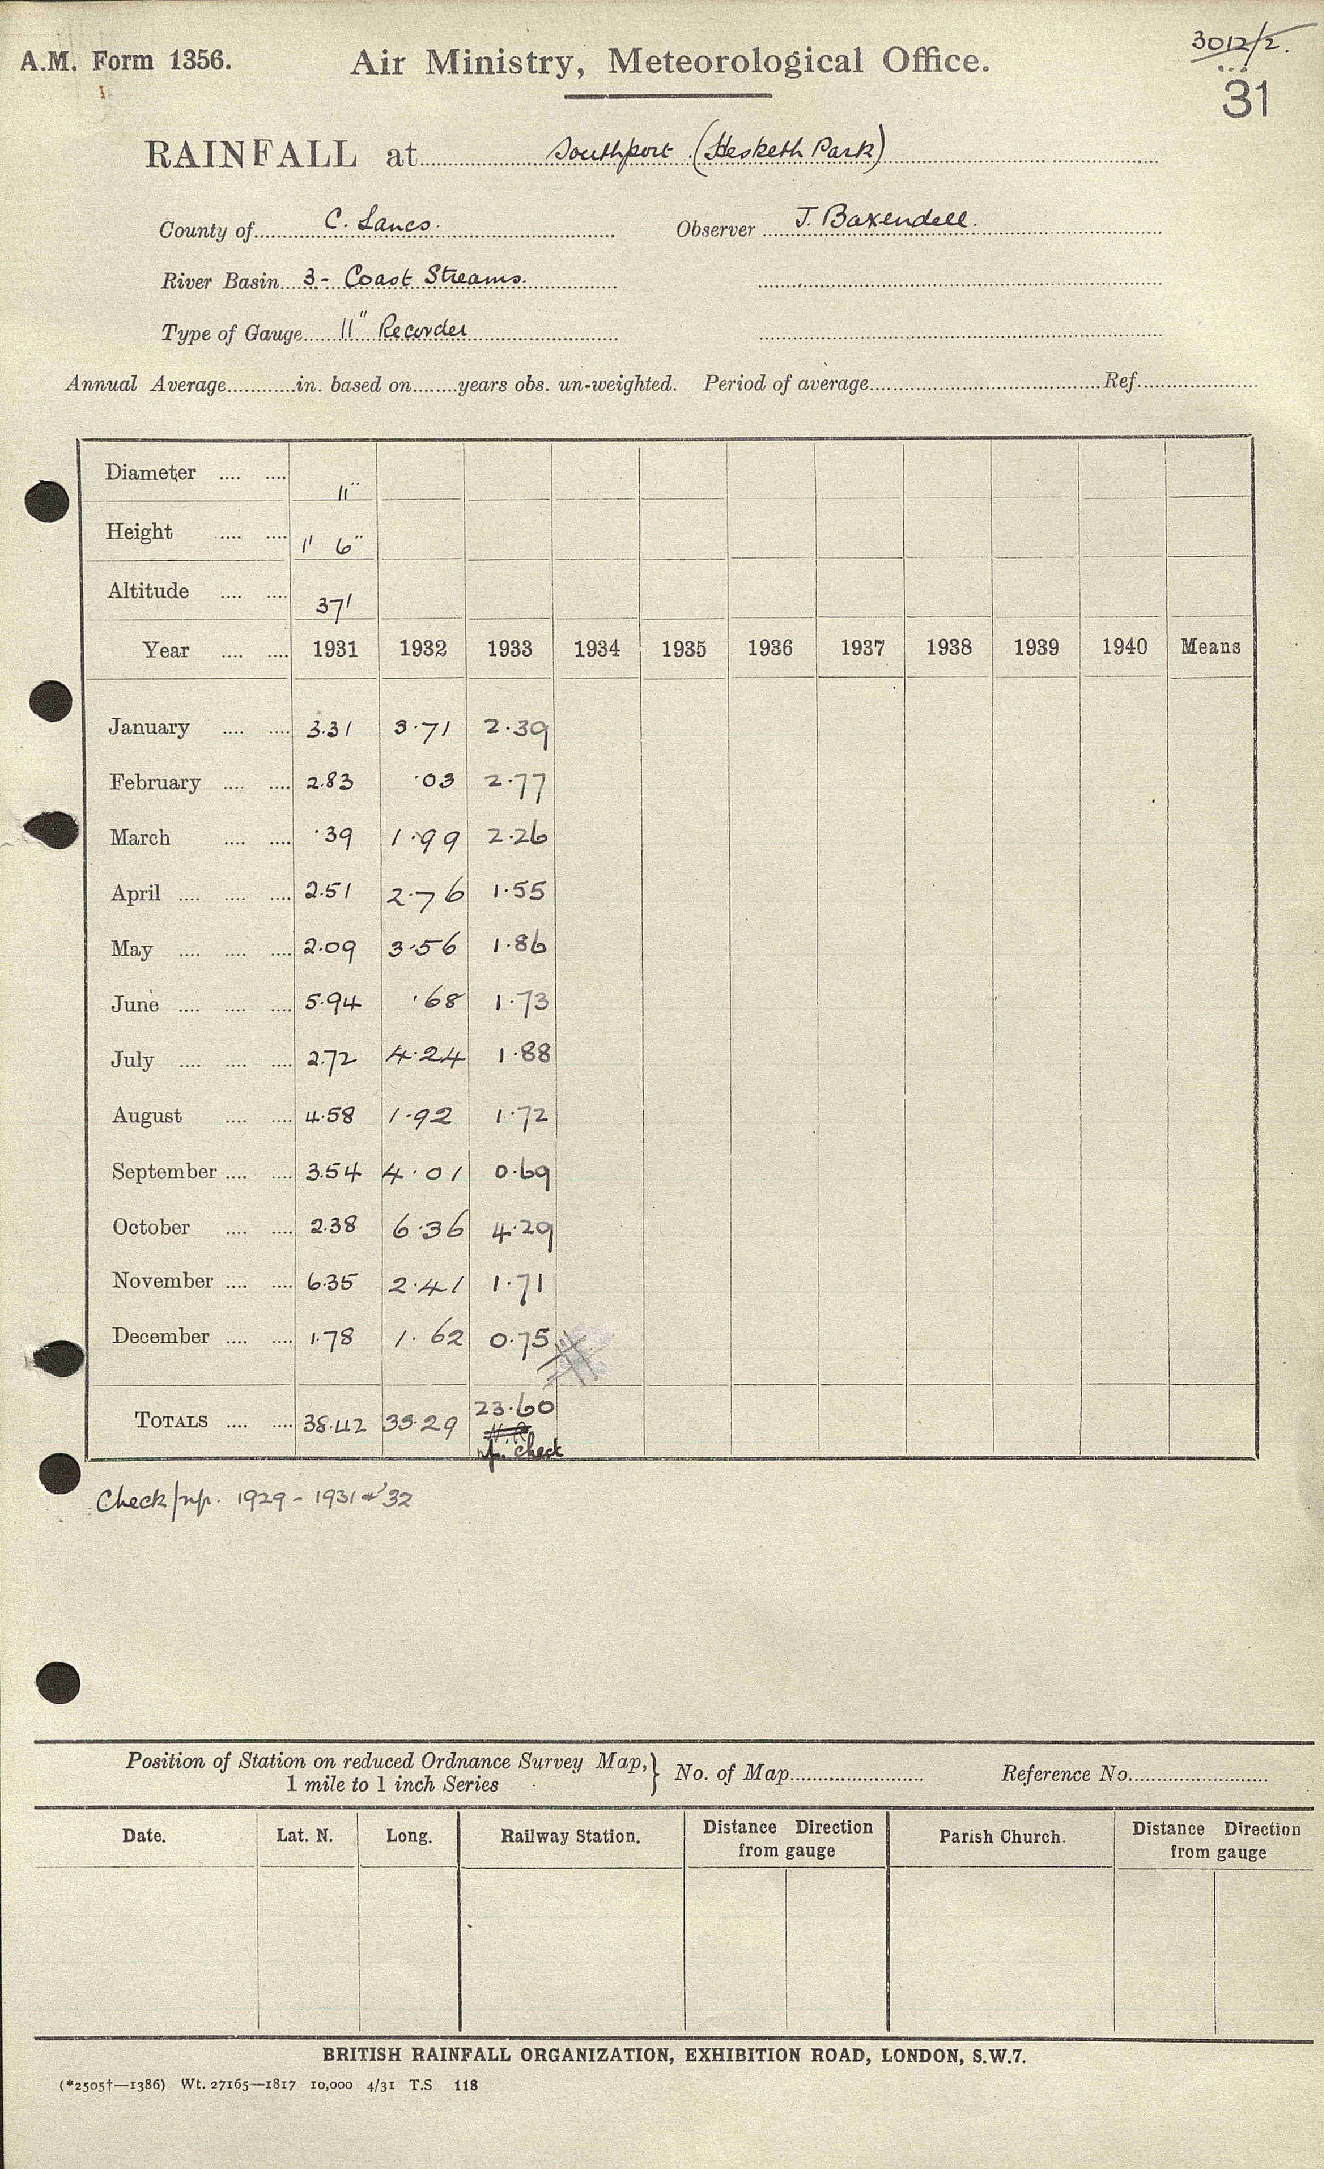 A.M. Form 1356.
Air Ministry, Meteorological Office.
3012/2.
31
RAINFALL at Southport (Hesketh Park)
County of C. Lancs. Observer J. Baxendell.
River Basin 3- Coast Streams.
Type of Gauge 11" Recorder
Annual Average in. based on years obs. un-weighted. Period of average Ref.
Diameter 11"
Height 1' 6"
Altitude 37'
Year 1931 1932 1933 1934 1935 1936 1937 1938 1939 1940 Means
January 3.31 3.71 2.39
February 2.83 .03 2.77
March .39 1.99 2.26
April 2.51 2.76 1.55
May 2.09 3.56 1.86
June 5.94 .68 1.73
July 2.72 4.24 1.88
August 4.58 1.92 1.72
September 3.54 4.01 0.69
October 2.38 6.36 4.29
November 6.35 2.41 1.71
December 1.78 1.62 0.75
TOTALS 38.42 33.29 23.60
check
Check/np. 1929 - 1931 & 32
Position of Station on reduced Ordnance Survey Map, } No. of Map Reference No.
1 mile to 1 inch Series
Date. Lat. N. Long. Railway Station. Distance Direction from gauge Parish Church. Distance Direction from gauge
BRITISH RAINFALL ORGANIZATION, EXHIBITION ROAD, LONDON, S.W.7.
(*2505†—1386) Wt. 27165—1817 10,000 4/31 T.S 118